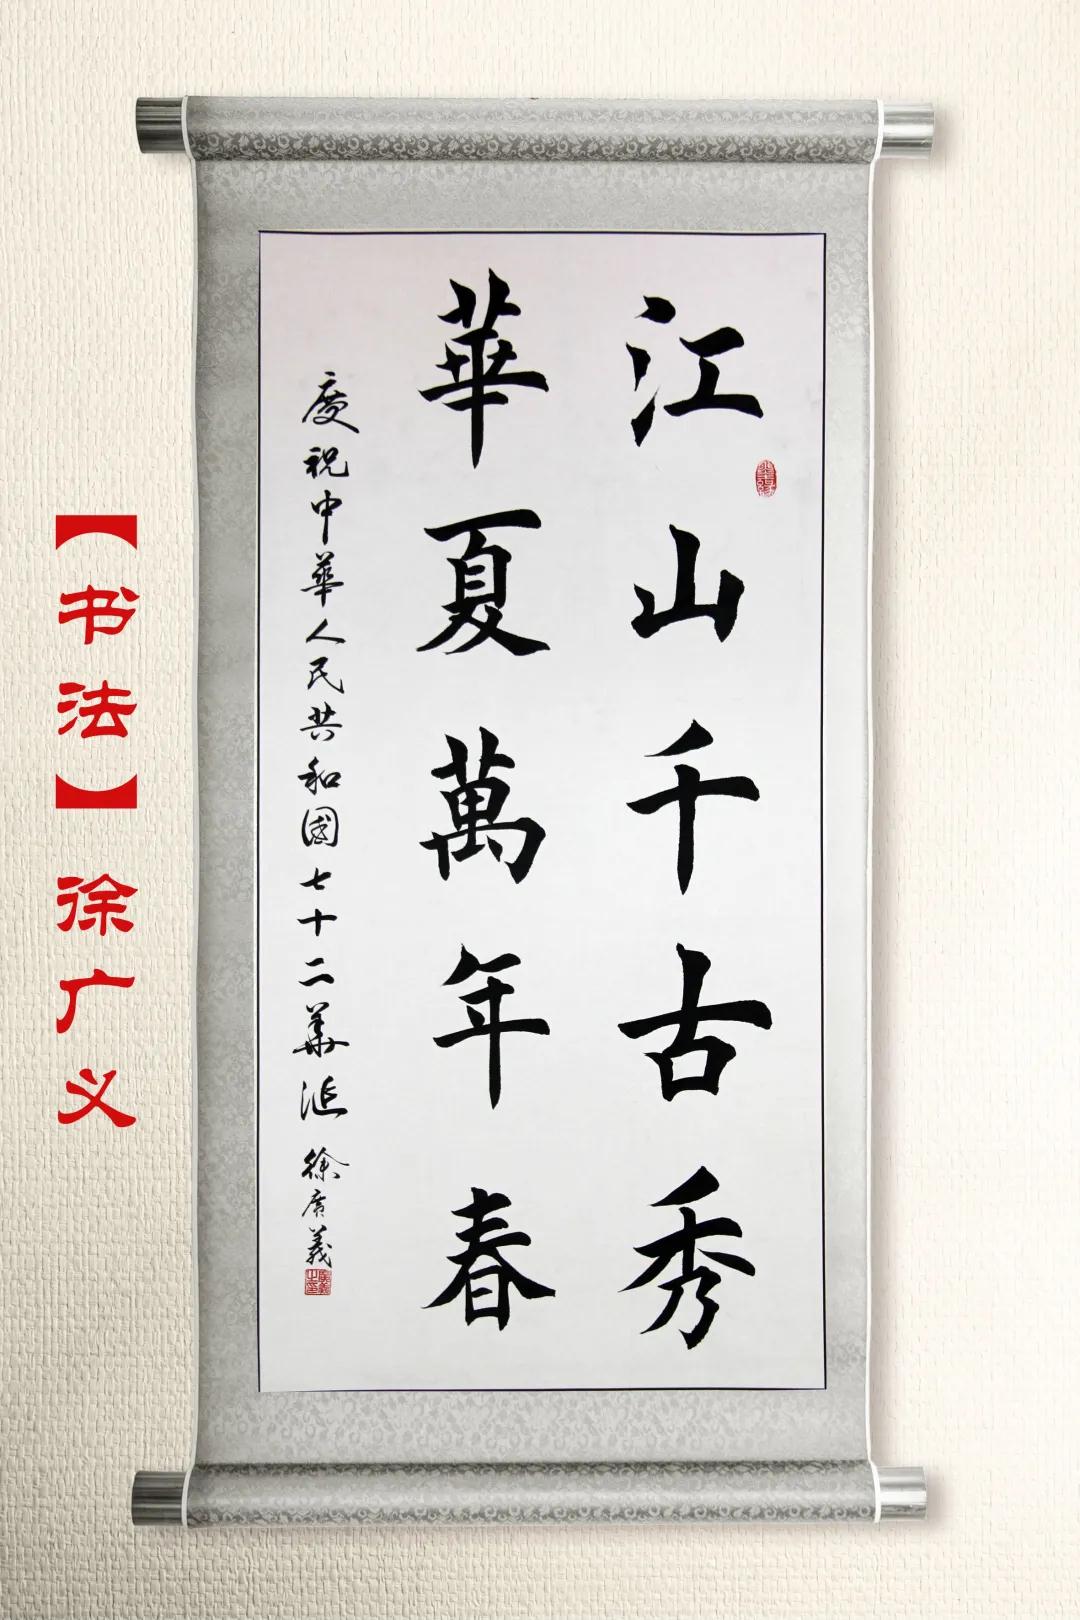 江山千古秀
華夏萬年春
慶祝中華人民共和國七十二華誕
徐廣義
【书法】徐广义